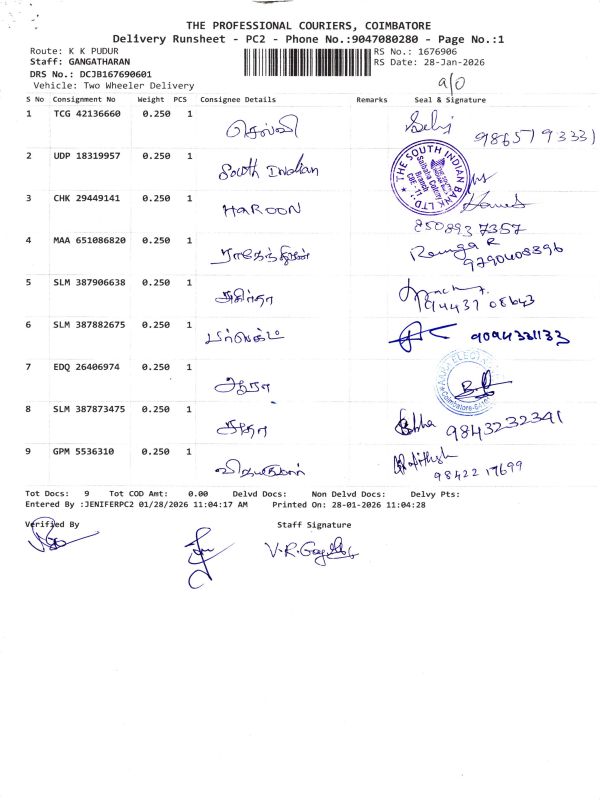 THE PROFESSIONAL COURIERS, COIMBATORE
Delivery Runsheet - PC2 - Phone No.:9047080280 - Page No.:1
Route: K K PUDUR RS No.: 1676906
Staff: GANGATHARAN RS Date: 28-Jan-2026
DRS No.: DCJB167690601
Vehicle: Two Wheeler Delivery a/o
S No Consignment No Weight PCS Consignee Details Remarks Seal & Signature
1 TCG 42136660 0.250 1 செல்வி Selvi 9865793331
2 UDP 18319957 0.250 1 South Indian THE SOUTH INDIAN BANK LTD.
3 CHK 29449141 0.250 1 HAROON
8508937357
4 MAA 651086820 0.250 1 ராஜேந்திரன் 9790408396
5 SLM 387906638 0.250 1 94437 08643
6 SLM 387882675 0.250 1 9094331133
7 EDQ 26406974 0.250 1
8 SLM 387873475 0.250 1 சுதா 9843232341
9 GPM 5536310 0.250 1 98422 17699
Tot Docs: 9 Tot COD Amt: 0.00 Delvd Docs: Non Delvd Docs: Delvy Pts:
Entered By :JENIFERPC2 01/28/2026 11:04:17 AM Printed On: 28-01-2026 11:04:28
Verified By Staff Signature